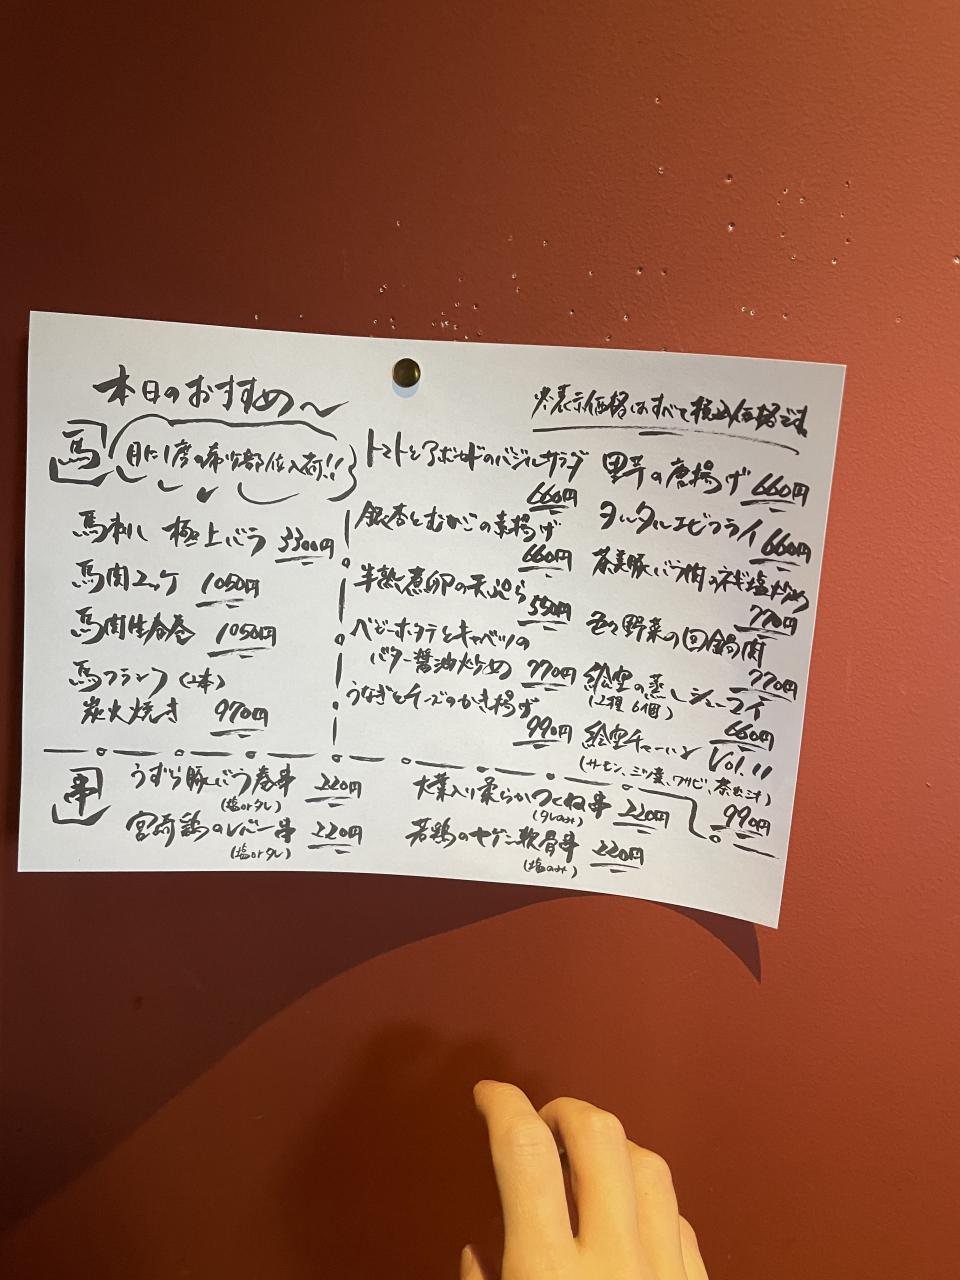 本日のおすすめ～
※表示価格はすべて税込価格です。
馬
月に1度の希少部位入荷!!
馬刺し 極上バラ 3300円
馬肉ユッケ 1050円
馬肉生春巻 1050円
馬フランク(2本)
炭火焼き 970円
トマトとアボカドのバジルサラダ
660円
銀杏とむかごの素揚げ
660円
半熟煮卵の天ぷら
550円
ベビーホタテとキャベツの
バター醤油炒め 770円
うなぎとチーズのかき揚げ
990円
里芋の唐揚げ 660円
タルタルエビフライ 660円
茶美豚バラ肉のネギ塩炒め
770円
色々野菜の回鍋肉
770円
絵空の蒸しシューマイ
(2種 6個) 660円
絵空チャーハン Vol.11
(サーモン、三つ葉、ワサビ、茶出汁)
990円
串
うずら豚バラ巻串 220円
(塩orタレ)
宮崎鶏のレバー串 220円
(塩orタレ)
大葉入り柔らかつくね串 220円
(タレのみ)
若鶏のヤゲン軟骨串 220円
(塩のみ)